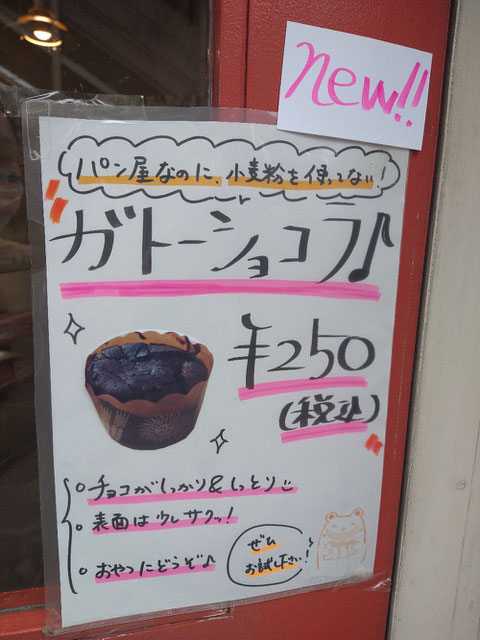 new!!
パン屋なのに、小麦粉を使ってない!
ガトーショコラ♪
¥250
(税込)
チョコがしっかり&しっとり
表面は少しサクッ!
おやつにどうぞ♪
ぜひ
お試し下さい!